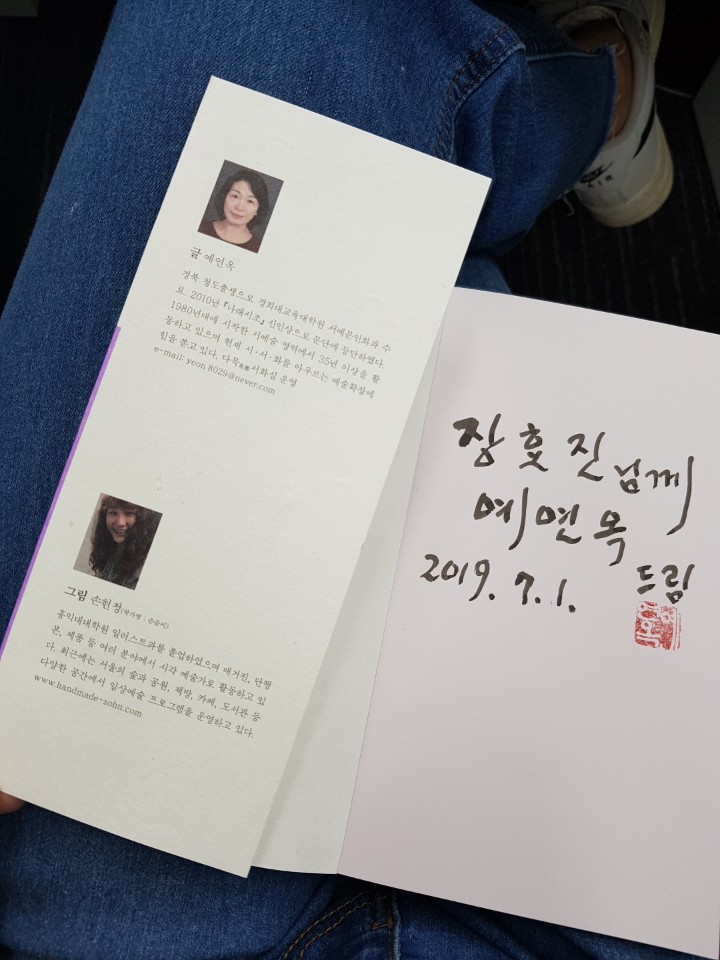 글 예연옥
경북 청도출생으로 경희대교육대학원 서예문인화과 수
료. 2010년 『나래시조』 신인상으로 문단에 등단하였다.
1980년대에 시작한 서예술 영역에서 35년 이상을 활
동하고 있으며 현재 시·서·화를 아우르는 예술확장에
힘을 쏟고 있다. 다묵 서화실 운영
e-mail: yeon8029@never.com
그림 손현정(작가명 : 손솜씨)
홍익대대학원 일러스트과를 졸업하였으며 매거진, 단행
본, 제품 등 여러 분야에서 시각 예술가로 활동하고 있
다. 최근에는 서울의 숲과 공원, 책방, 카페, 도서관 등
다양한 공간에서 일상예술 프로그램을 운영하고 있다.
www.handmade-sohn.com
장 진 님께
예연옥
드림
2019. 7. 1.